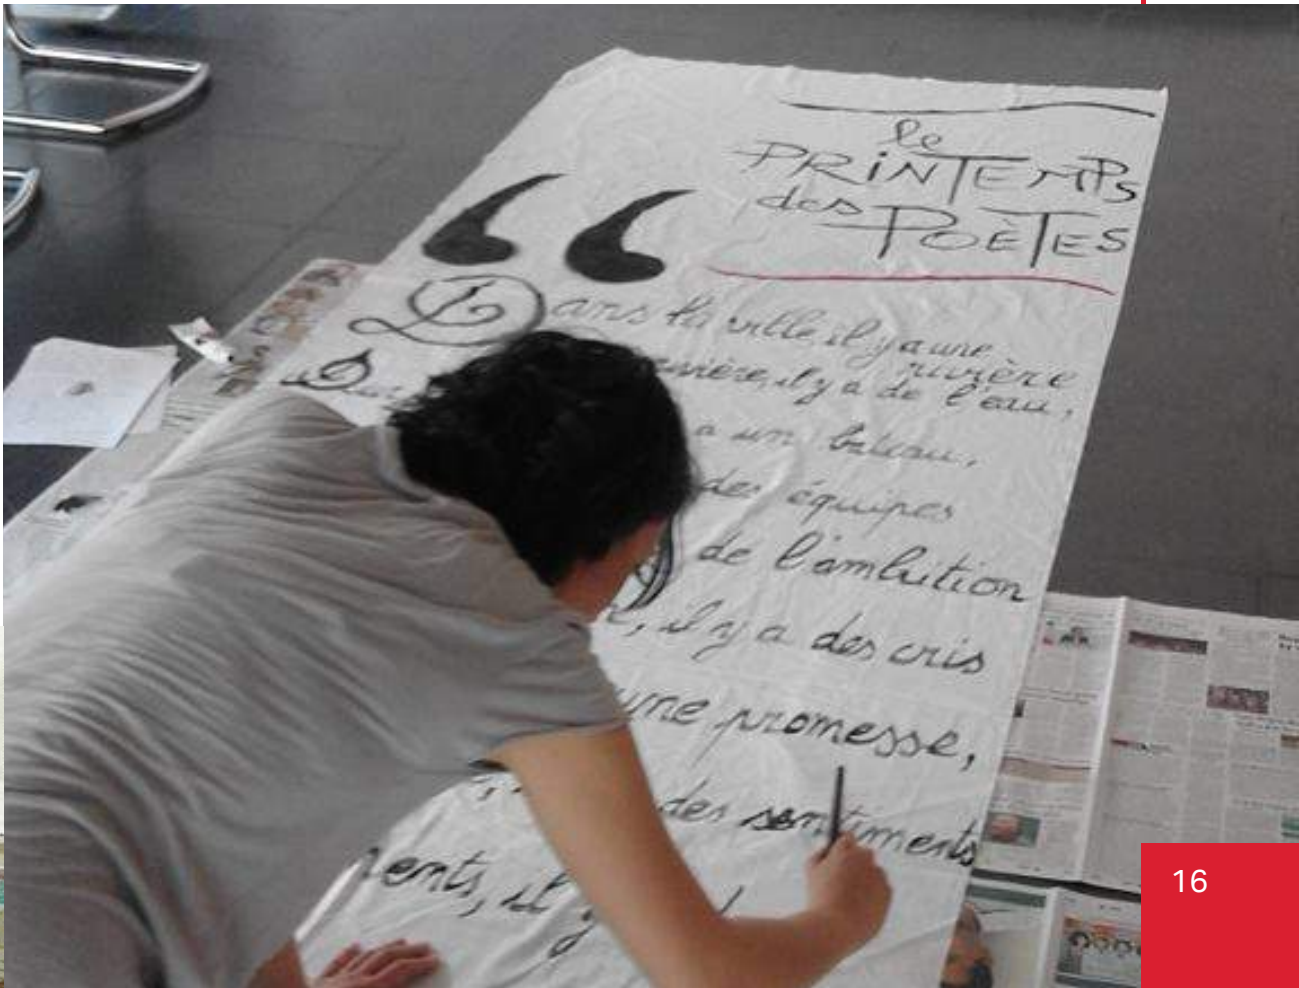 le
PRiNTEMPS
des POÈTES
Dans la ville, il y a une
rivière
Sur rivière, il y a de l'eau,
a un bateau,
des équipes
de l'ambition
e, il y a des cris
une promesse,
des sentiments
ents, il y
16